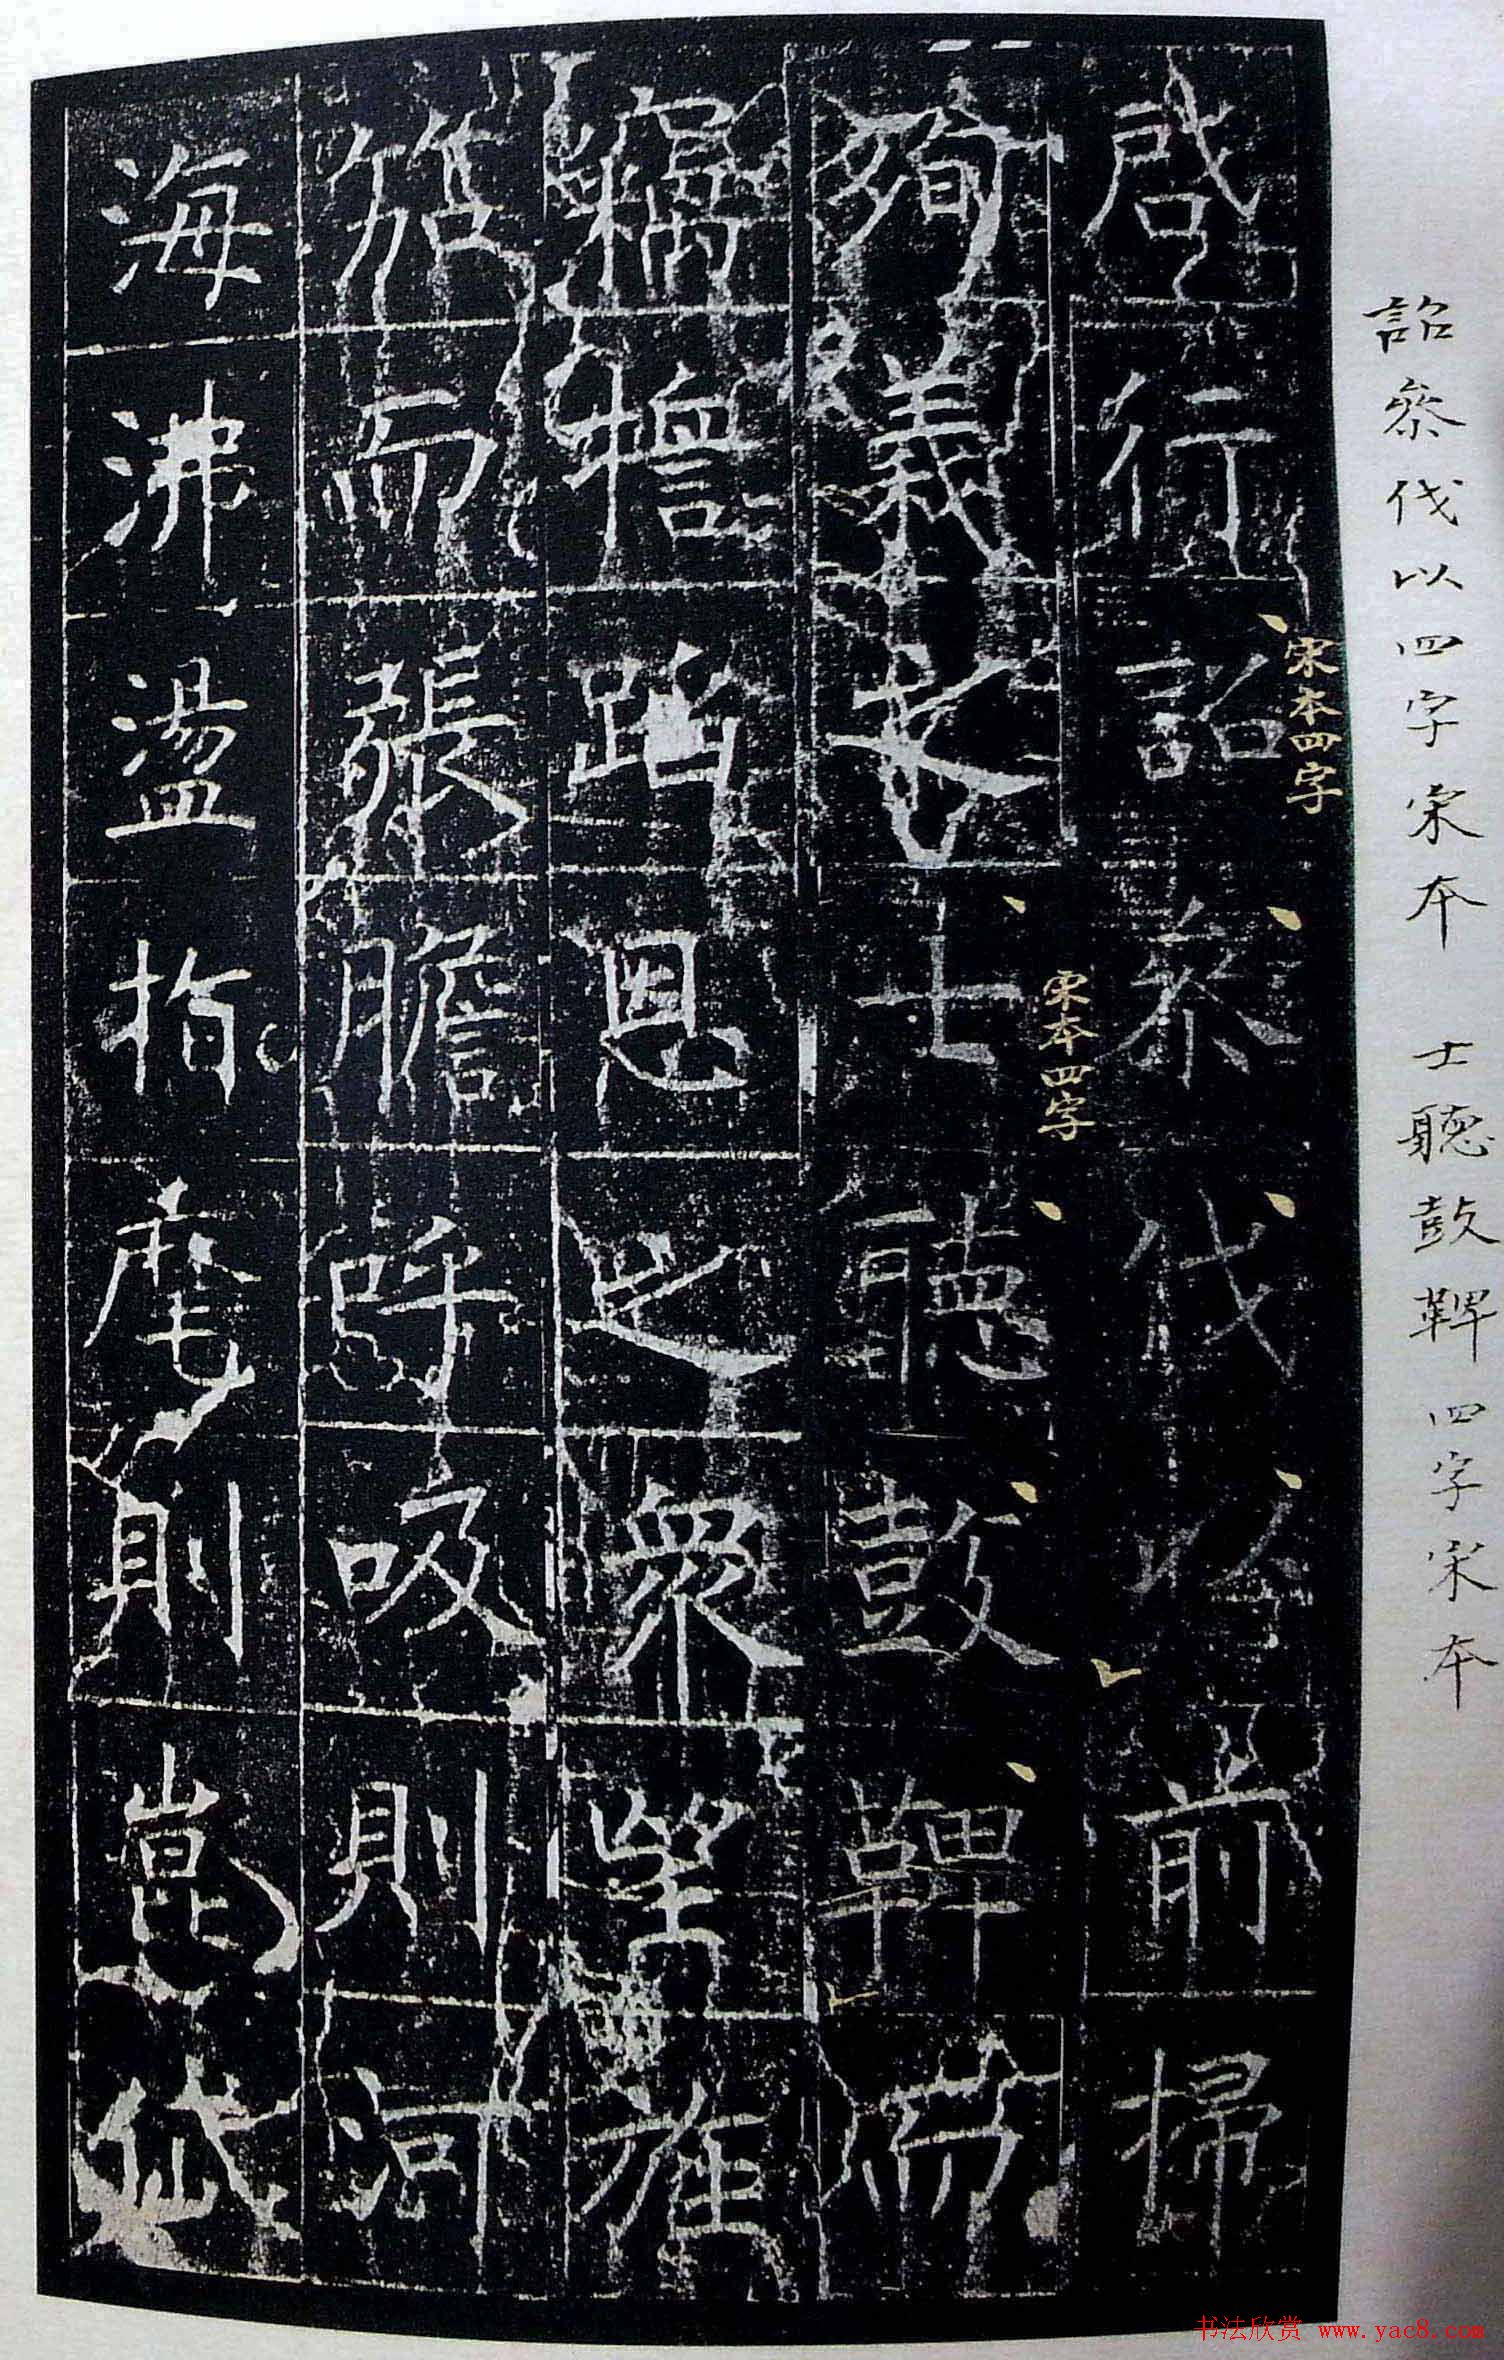 詔叅伐以四字宋本 士聽鼓鞞四字宋本
启行詔叅伐以前掃
宋本四字
殉義士聽鼓鞞而
宋本四字
竊蹈恩之衆望旌
而張膽呼吸則河
海沸盪指麾則崑岱
书法欣赏 www.yac8.com